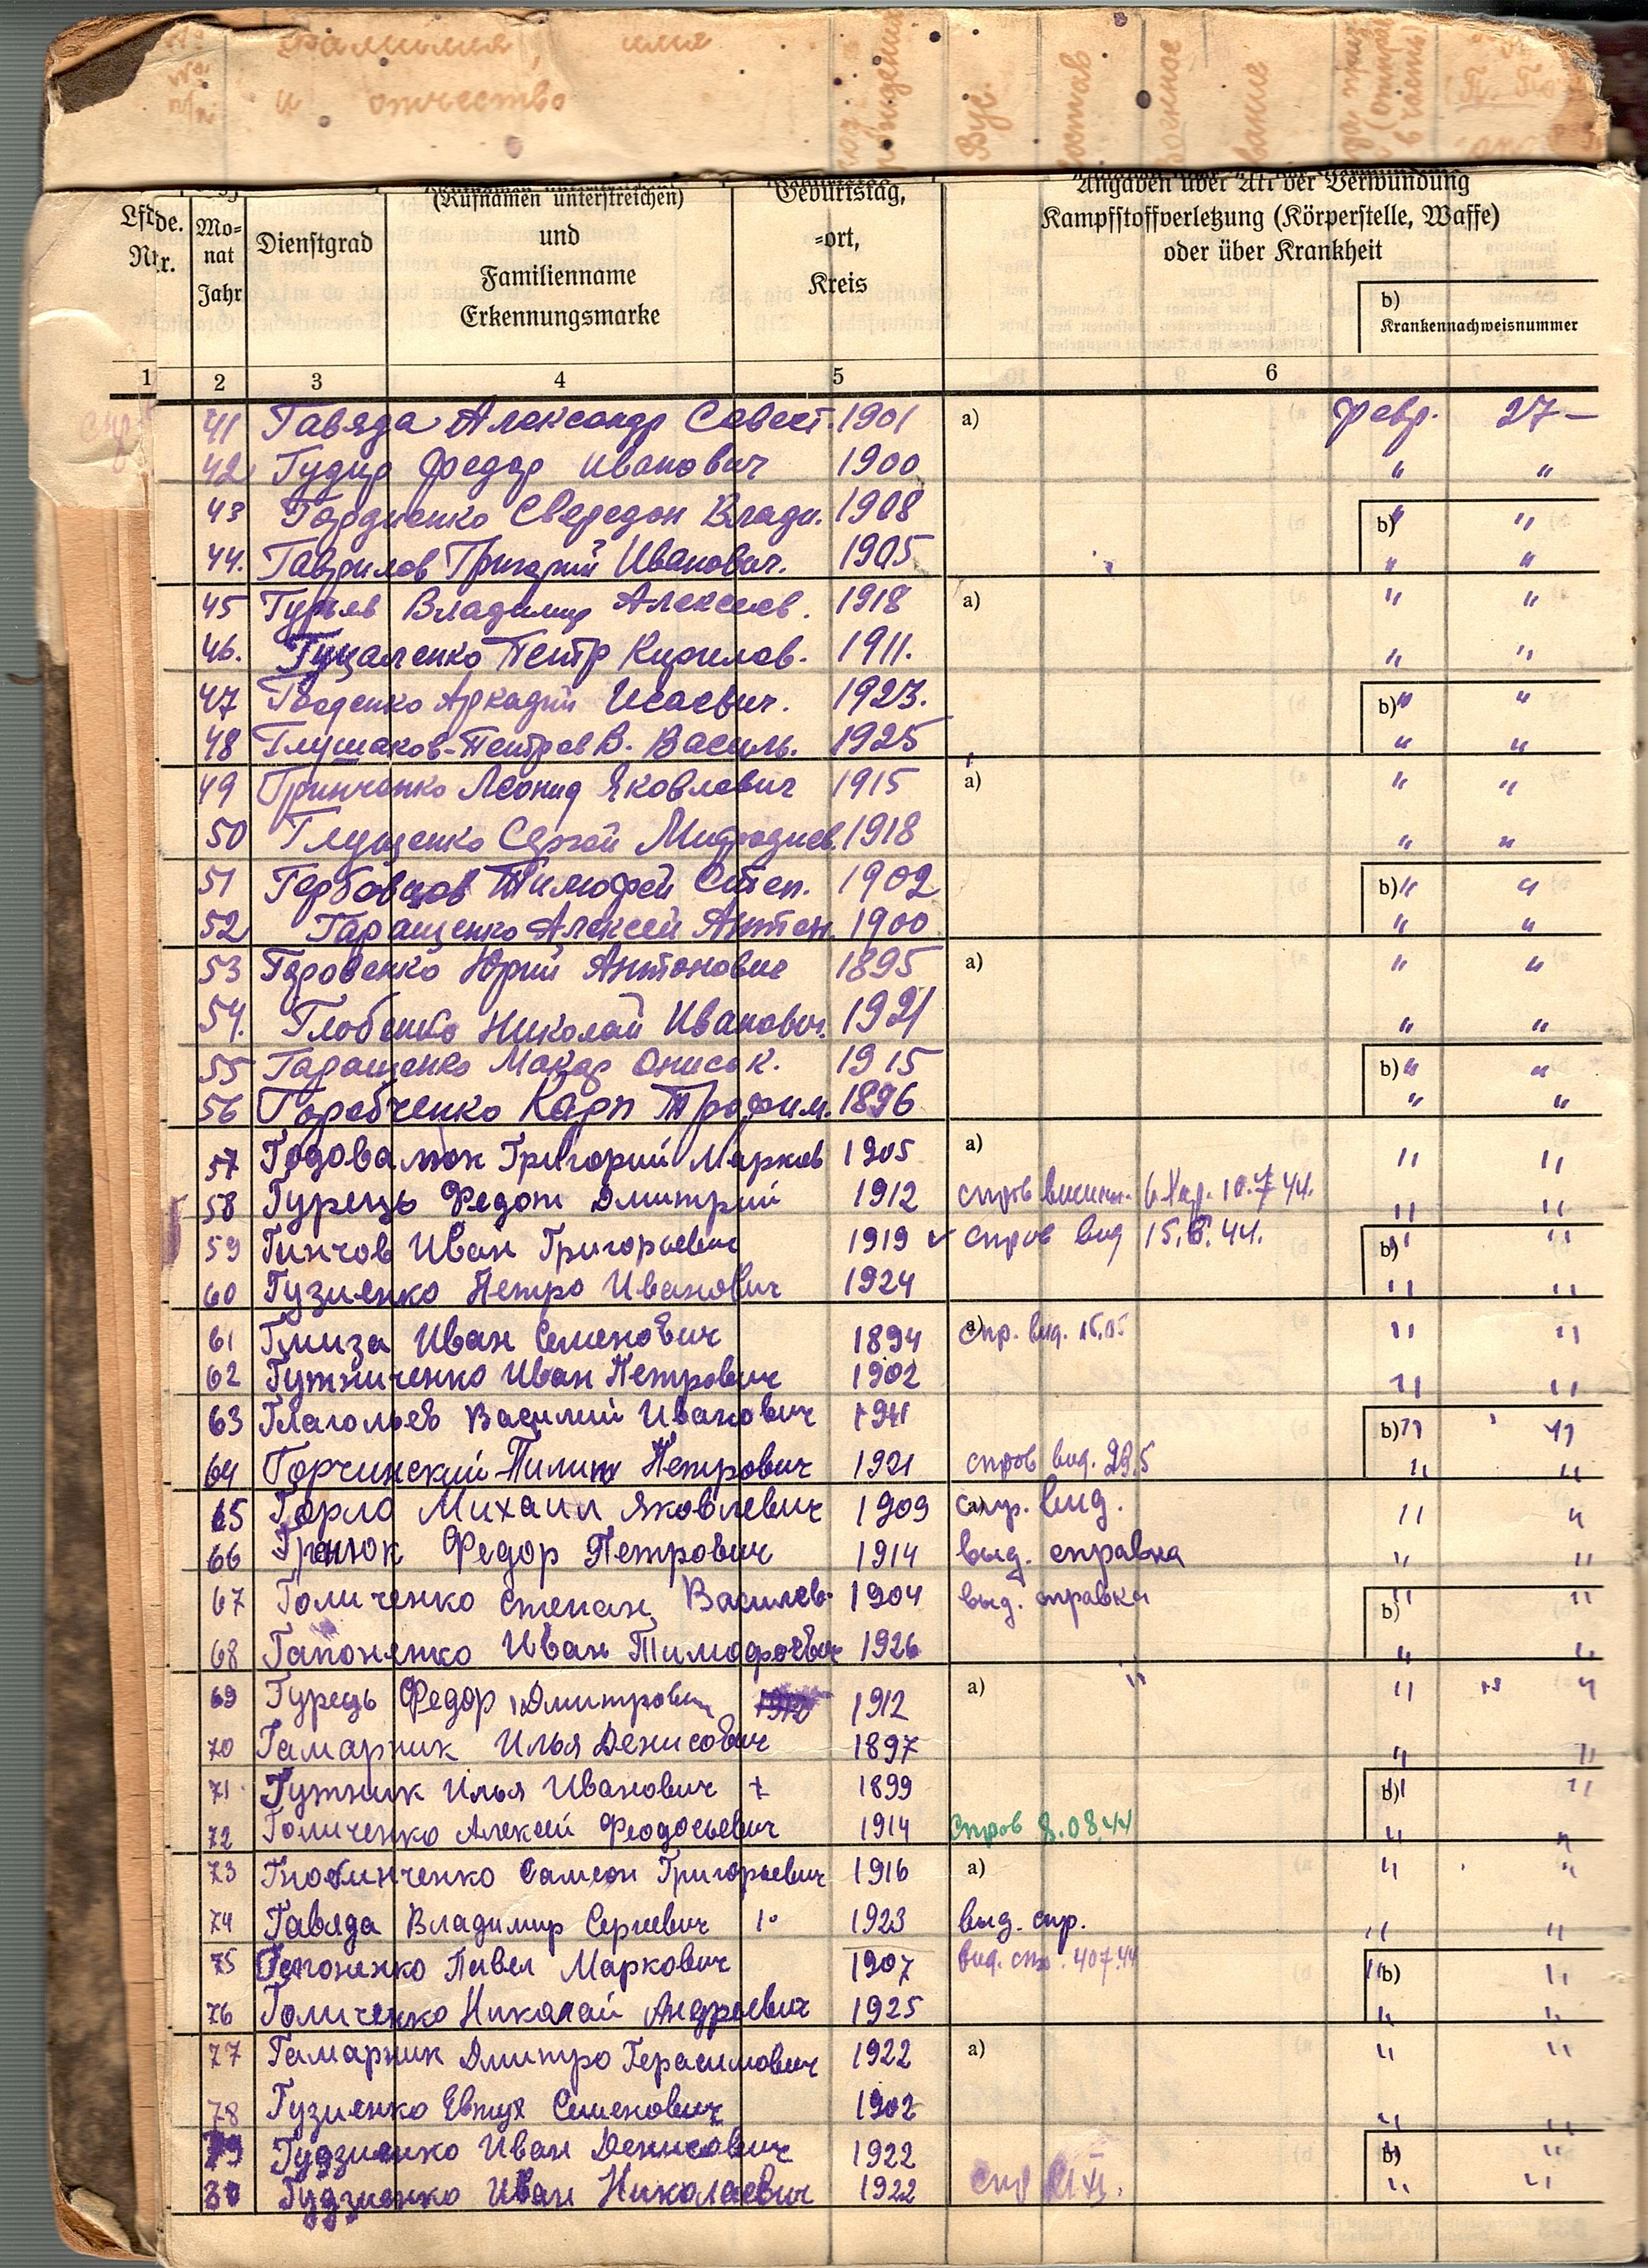 фамилия, имя
и отчество
рождения
Вус.
(Rufnamen unterstreichen) Geburtstag, Angaben über Art der Verwundung
Lfde. Nr. Mo-nat Jahr Dienstgrad und Familienname Erkennungsmarke -ort, Kreis Kampfstoffverletzung (Körperstelle, Waffe) oder über Krankheit
b) Krankennachweisnummer
1 2 3 4 5 6
41 Гавяда Александр Савест. 1901 a) февр. 27 –
42 Гудир Федор Иванович 1900 " "
43 Гордиенко Свередон Влади. 1908 b) " "
44. Гаврилов Григорий Иванович. 1905 " "
45 Гурьев Владимир Алексеев. 1918 a) " "
46. Гуцаленко Петр Кирилов. 1911. " "
47 Гводенко Аркадий Исаевич. 1923. b) " "
48 Глушаков-Петров В. Василь. 1925 " "
49 Гринченко Леонид Яковлевич 1915 a) " "
50 Глущенко Сергей Мифодиев. 1918 " "
51 Горбовцов Тимофей Степ. 1902 b) " "
52 Гаращенко Алексей Антон. 1900 " "
53 Геровенко Юрий Антонович 1895 a) " "
54. Глобенко Николай Иванович. 1921 " "
55 Гаращенко Макар Ониськ. 1915 b) " "
56 Горобченко Карп Трофим. 1896 " "
57 Годовалюк Григорий Марков 1905 a) " "
58 Гурець Федот Дмитрий 1912 " "
59 Гинчов Иван Григорьевич 1919 ✓ спров вид 15.8.44. b) " "
60 Гузиенко Петро Иванович 1924 " "
61 Глиза Иван Семенович 1894 a) спр. вид. 15.05 " "
62 Гужниченко Иван Петрович 1902 " "
63 Глагольев Василий Иванович b) " "
64 Горчинский Пилип Петрович 1921 спров вид. 29.5 " "
65 Горло Михаил Яковлевич 1909 a) спр. вид. " "
66 Гренюк Федор Петрович 1914 выд. справка " "
67 Голиченко Степан Василев. 1904 выд. справка b) " "
68 Гапоненко Иван Тимофеевич 1926 " "
69 Гурець Федор Дмитрович 1912 a) " "
70 Гамарник Илья Денисович 1897 " "
71 Гужник Илья Иванович + 1899 b) " "
72 Голиченко Алексей Феодосьевич 1914 Спров 8.08.44 " "
73 Гнотинченко Самсон Григорьевич 1916 a) " "
74 Гавяда Владимир Сергиевич 1923 выд. спр. " "
75 Гапоненко Павел Маркович 1907 вид. спр. 4.07.44 b) " "
76 Голиченко Николай Андреевич 1925 " "
77 Гамарник Дмитро Герасимович 1922 a) " "
78 Гузиенко Евтух Семенович 1902 " "
79 Гудзиенко Иван Денисович 1922 b) " "
80 Гудзиенко Иван Николаевич 1922 " "